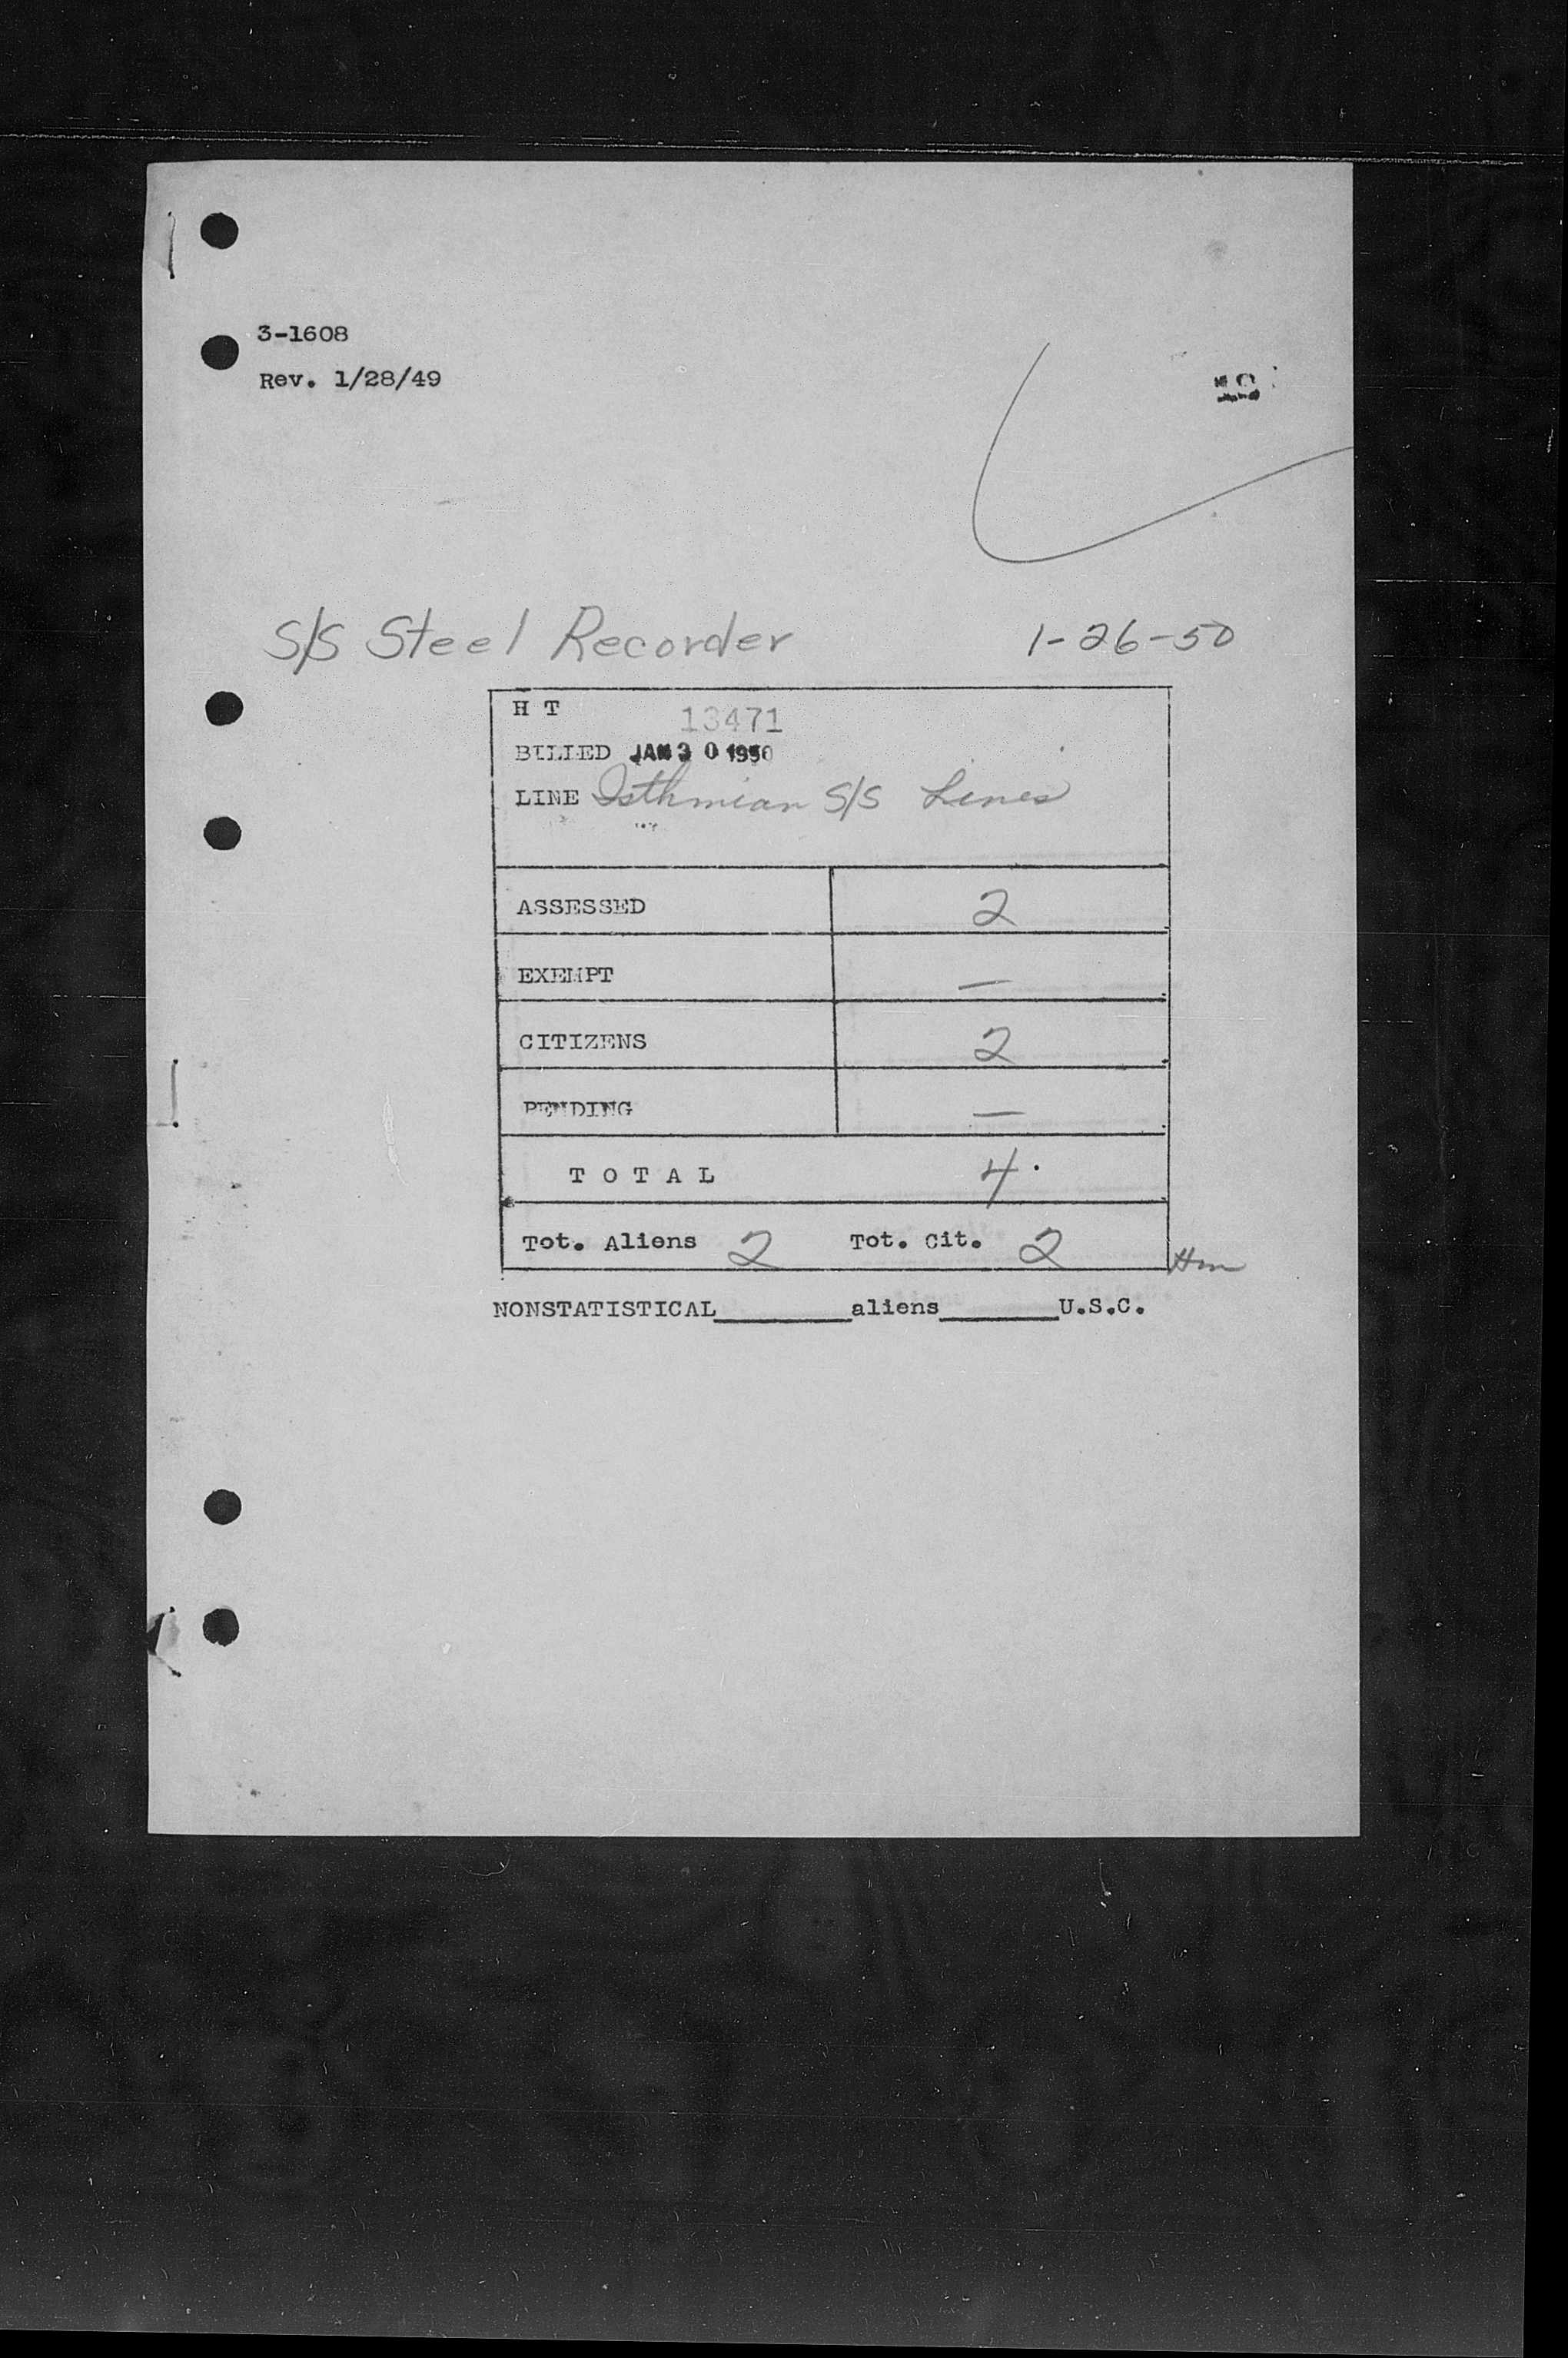 3-1608
Rev. 1/28/49
S/S Steel Recorder 1-26-50
H T 13471
BILLED JAN 30 1950
LINE Isthmian S/S Lines
ASSESSED 2
EXEMPT —
CITIZENS 2
PENDING —
TOTAL 4
Tot. Aliens 2 Tot. Cit. 2
NONSTATISTICAL________aliens_______U.S.C.